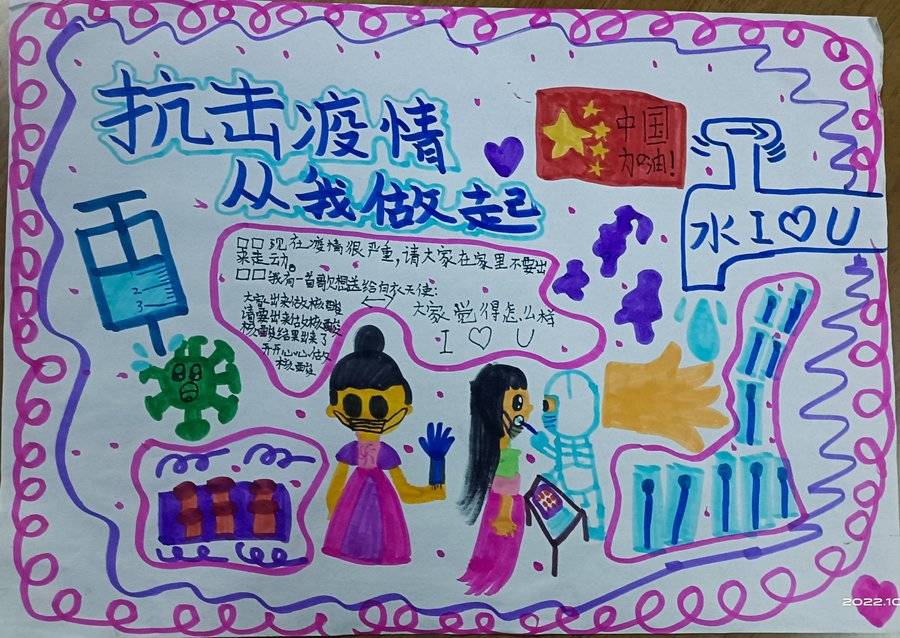 抗击疫情
从我做起
中国
加油!
水 I ♡ U
□□现在疫情很严重,请大家在家里不要出
来走动。
□□我有一首歌想送给白衣天使:
大家出来做核酸
请要出来做核酸
核酸结果到来了
开开心心做
核酸
大家觉得怎么样
I ♡ U
2
3
2022.10